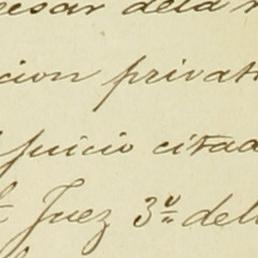 cesar dela
cion privat
juicio citad
Juez 3º del